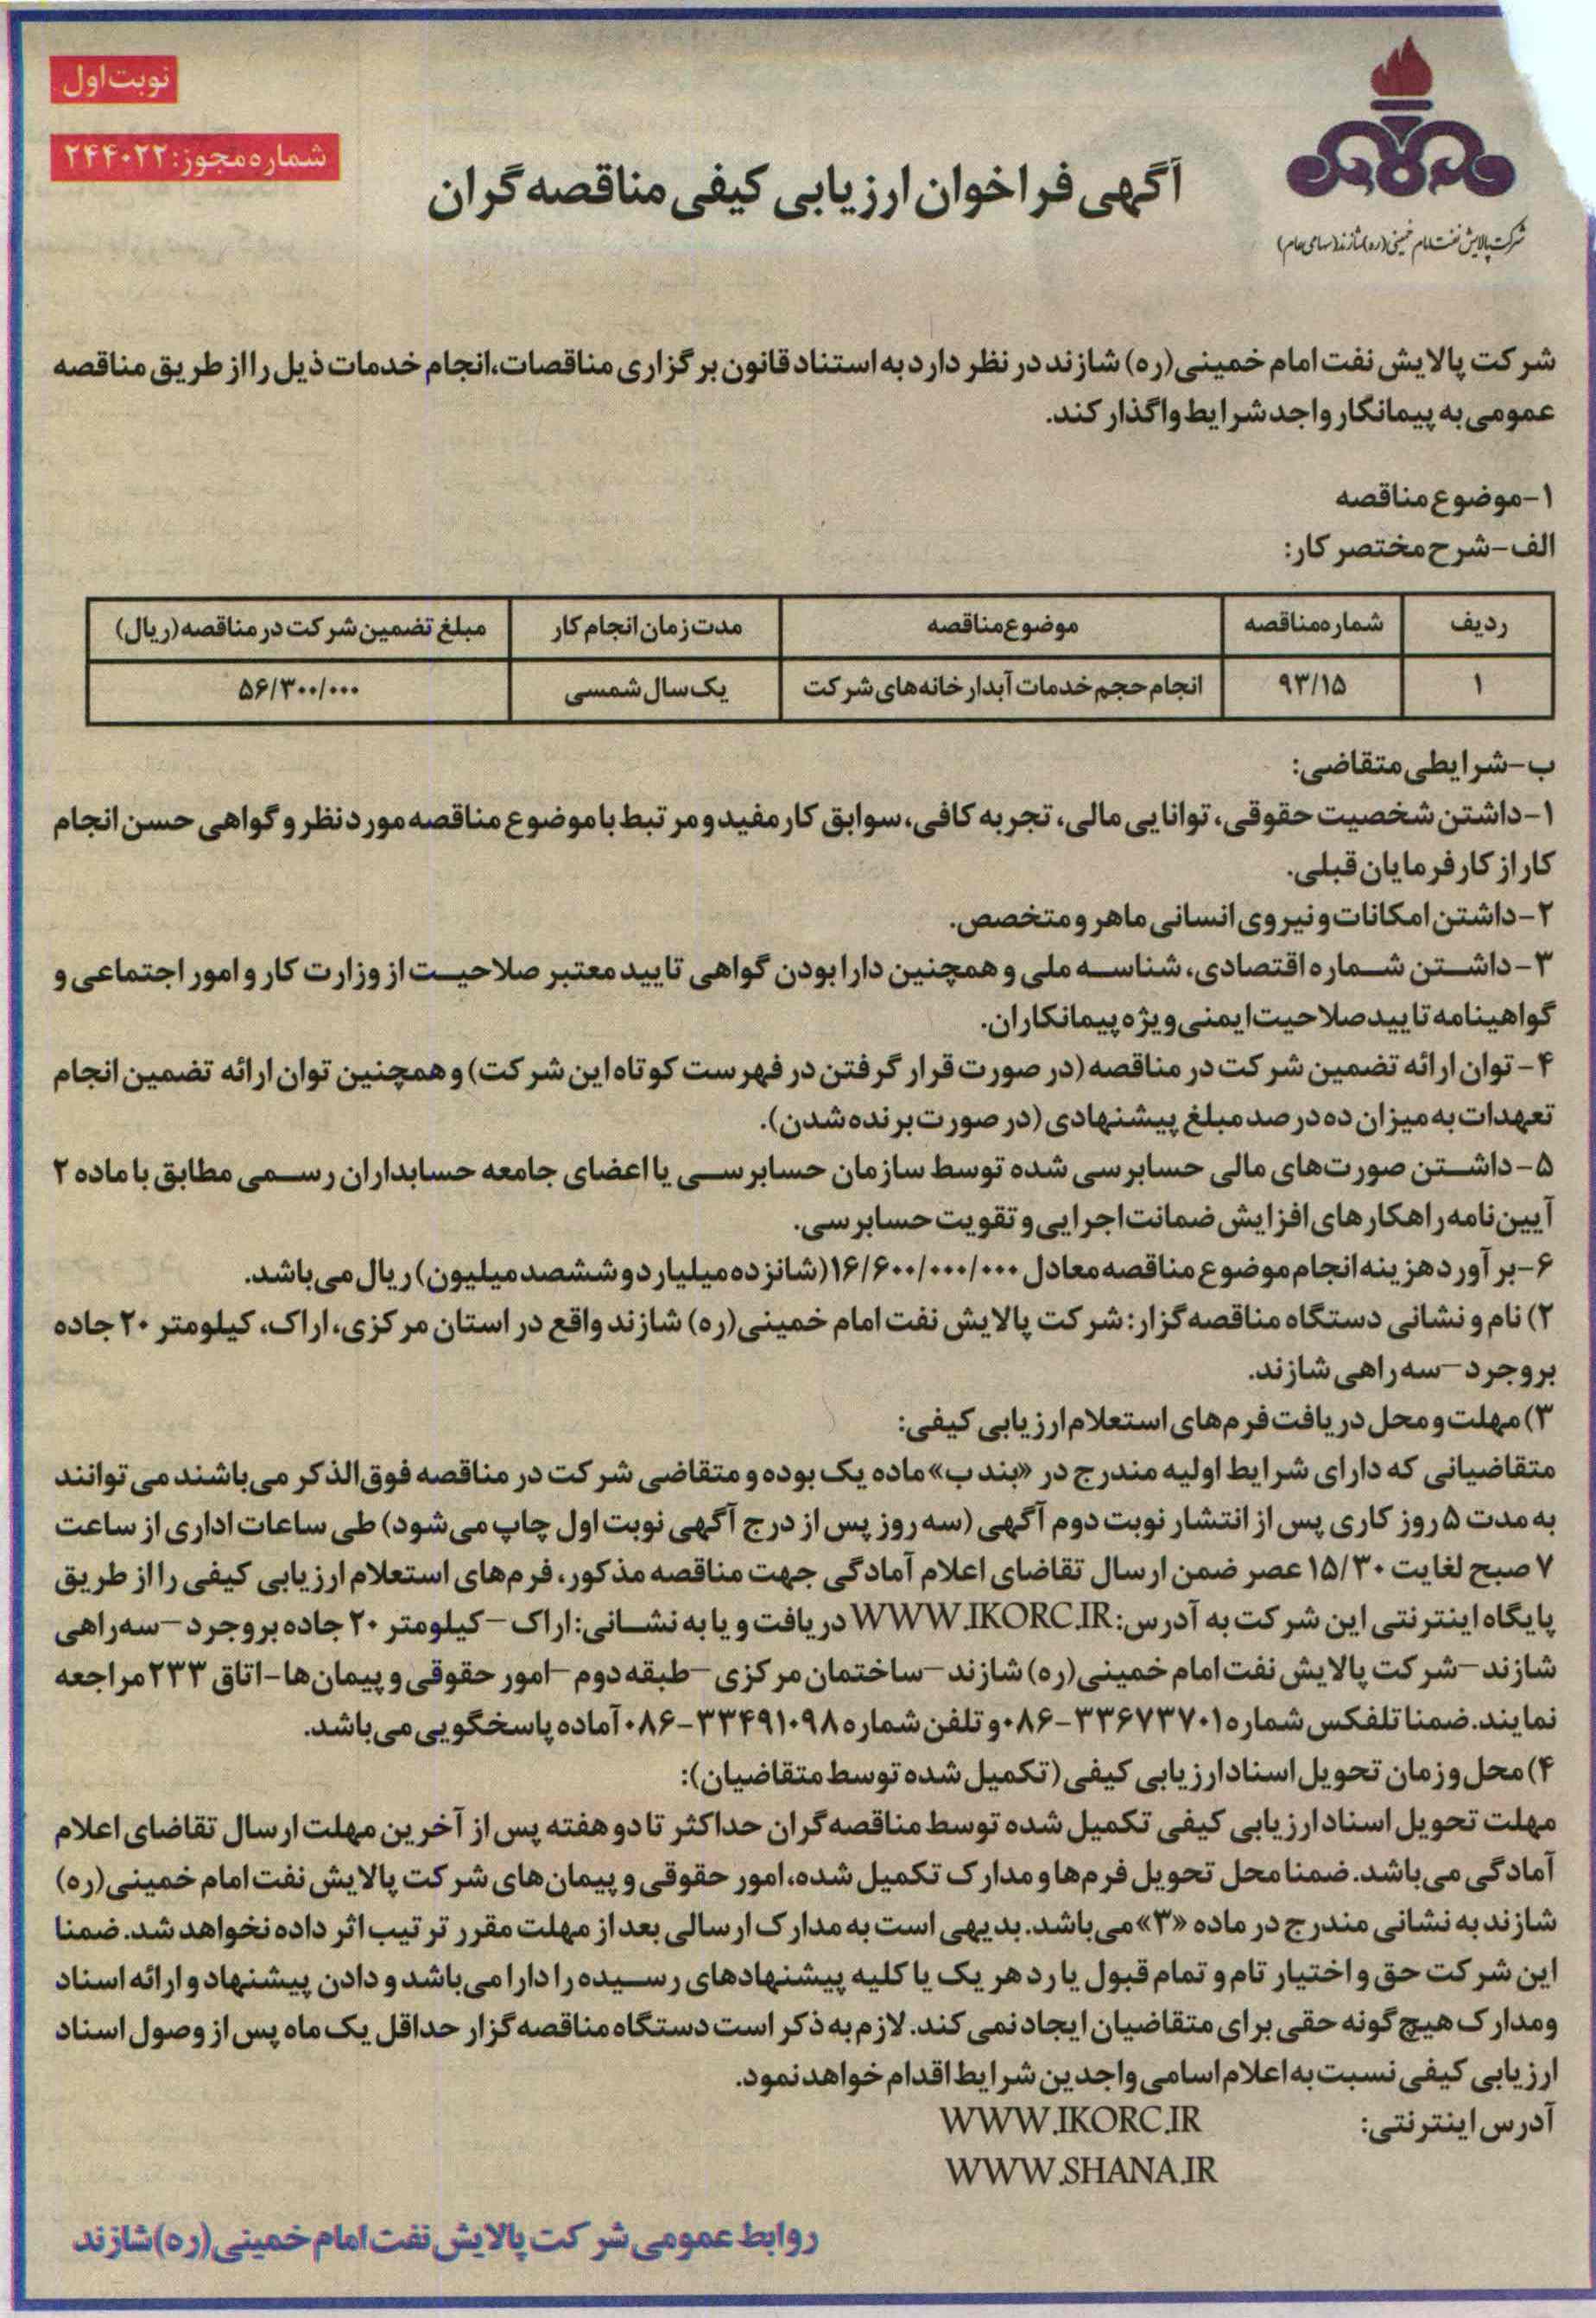 نوبت اول
شماره مجوز: ۲۴۴۰۲۲
آگهی فراخوان ارزیابی کیفی مناقصه گران
شرکت پالایش نفت امام خمینی (ره) شازند (سهامی عام)
شرکت پالایش نفت امام خمینی (ره) شازند در نظر دارد به استناد قانون برگزاری مناقصات، انجام خدمات ذیل را از طریق مناقصه
عمومی به پیمانکار واجد شرایط واگذار کند.
۱- موضوع مناقصه
الف- شرح مختصر کار:
ردیف | شماره مناقصه | موضوع مناقصه | مدت زمان انجام کار | مبلغ تضمین شرکت در مناقصه (ریال)
۱ | ۹۳/۱۵ | انجام حجم خدمات آبدارخانه‌های شرکت | یک سال شمسی | ۵۶/۳۰۰/۰۰۰
ب- شرایطی متقاضی:
۱- داشتن شخصیت حقوقی، توانایی مالی، تجربه کافی، سوابق کار مفید و مرتبط با موضوع مناقصه مورد نظر و گواهی حسن انجام
کار از کارفرمایان قبلی.
۲- داشتن امکانات و نیروی انسانی ماهر و متخصص.
۳- داشتن شماره اقتصادی، شناسه ملی و همچنین دارا بودن گواهی تایید معتبر صلاحیت از وزارت کار و امور اجتماعی و
گواهینامه تایید صلاحیت ایمنی ویژه پیمانکاران.
۴- توان ارائه تضمین شرکت در مناقصه (در صورت قرار گرفتن در فهرست کوتاه این شرکت) و همچنین توان ارائه تضمین انجام
تعهدات به میزان ده درصد مبلغ پیشنهادی (در صورت برنده شدن).
۵- داشتن صورت‌های مالی حسابرسی شده توسط سازمان حسابرسی یا اعضای جامعه حسابداران رسمی مطابق با ماده ۲
آیین نامه راهکارهای افزایش ضمانت اجرایی و تقویت حسابرسی.
۶- برآورد هزینه انجام موضوع مناقصه معادل ۱۶/۶۰۰/۰۰۰/۰۰۰ (شانزده میلیارد و ششصد میلیون) ریال می‌باشد.
۲) نام و نشانی دستگاه مناقصه گزار: شرکت پالایش نفت امام خمینی (ره) شازند واقع در استان مرکزی، اراک، کیلومتر ۲۰ جاده
بروجرد - سه راهی شازند.
۳) مهلت و محل دریافت فرم‌های استعلام ارزیابی کیفی:
متقاضیانی که دارای شرایط اولیه مندرج در «بند ب» ماده یک بوده و متقاضی شرکت در مناقصه فوق‌الذکر می‌باشند می توانند
به مدت ۵ روز کاری پس از انتشار نوبت دوم آگهی (سه روز پس از درج آگهی نوبت اول چاپ می‌شود) طی ساعات اداری از ساعت
۷ صبح لغایت ۱۵/۳۰ عصر ضمن ارسال تقاضای اعلام آمادگی جهت مناقصه مذکور، فرم‌های استعلام ارزیابی کیفی را از طریق
پایگاه اینترنتی این شرکت به آدرس: WWW.IKORC.IR دریافت و یا به نشانی: اراک - کیلومتر ۲۰ جاده بروجرد - سه راهی
شازند - شرکت پالایش نفت امام خمینی (ره) شازند - ساختمان مرکزی - طبقه دوم - امور حقوقی و پیمان‌ها - اتاق ۲۳۳ مراجعه
نمایند. ضمنا تلفکس شماره ۳۳۶۷۳۷۰۱-۰۸۶ و تلفن شماره ۳۳۴۹۱۰۹۸-۰۸۶ آماده پاسخگویی می‌باشد.
۴) محل و زمان تحویل اسناد ارزیابی کیفی (تکمیل شده توسط متقاضیان):
مهلت تحویل اسناد ارزیابی کیفی تکمیل شده توسط مناقصه گران حداکثر تا دو هفته پس از آخرین مهلت ارسال تقاضای اعلام
آمادگی می‌باشد. ضمنا محل تحویل فرم‌ها و مدارک تکمیل شده، امور حقوقی و پیمان‌های شرکت پالایش نفت امام خمینی (ره)
شازند به نشانی مندرج در ماده «۳» می‌باشد. بدیهی است به مدارک ارسالی بعد از مهلت مقرر ترتیب اثر داده نخواهد شد. ضمنا
این شرکت حق و اختیار تام و تمام قبول یا رد هر یک یا کلیه پیشنهادهای رسیده را دارا می‌باشد و دادن پیشنهاد و ارائه اسناد
و مدارک هیچ گونه حقی برای متقاضیان ایجاد نمی کند. لازم به ذکر است دستگاه مناقصه گزار حداقل یک ماه پس از وصول اسناد
ارزیابی کیفی نسبت به اعلام اسامی واجدین شرایط اقدام خواهد نمود.
آدرس اینترنتی: WWW.IKORC.IR
WWW.SHANA.IR
روابط عمومی شرکت پالایش نفت امام خمینی (ره) شازند